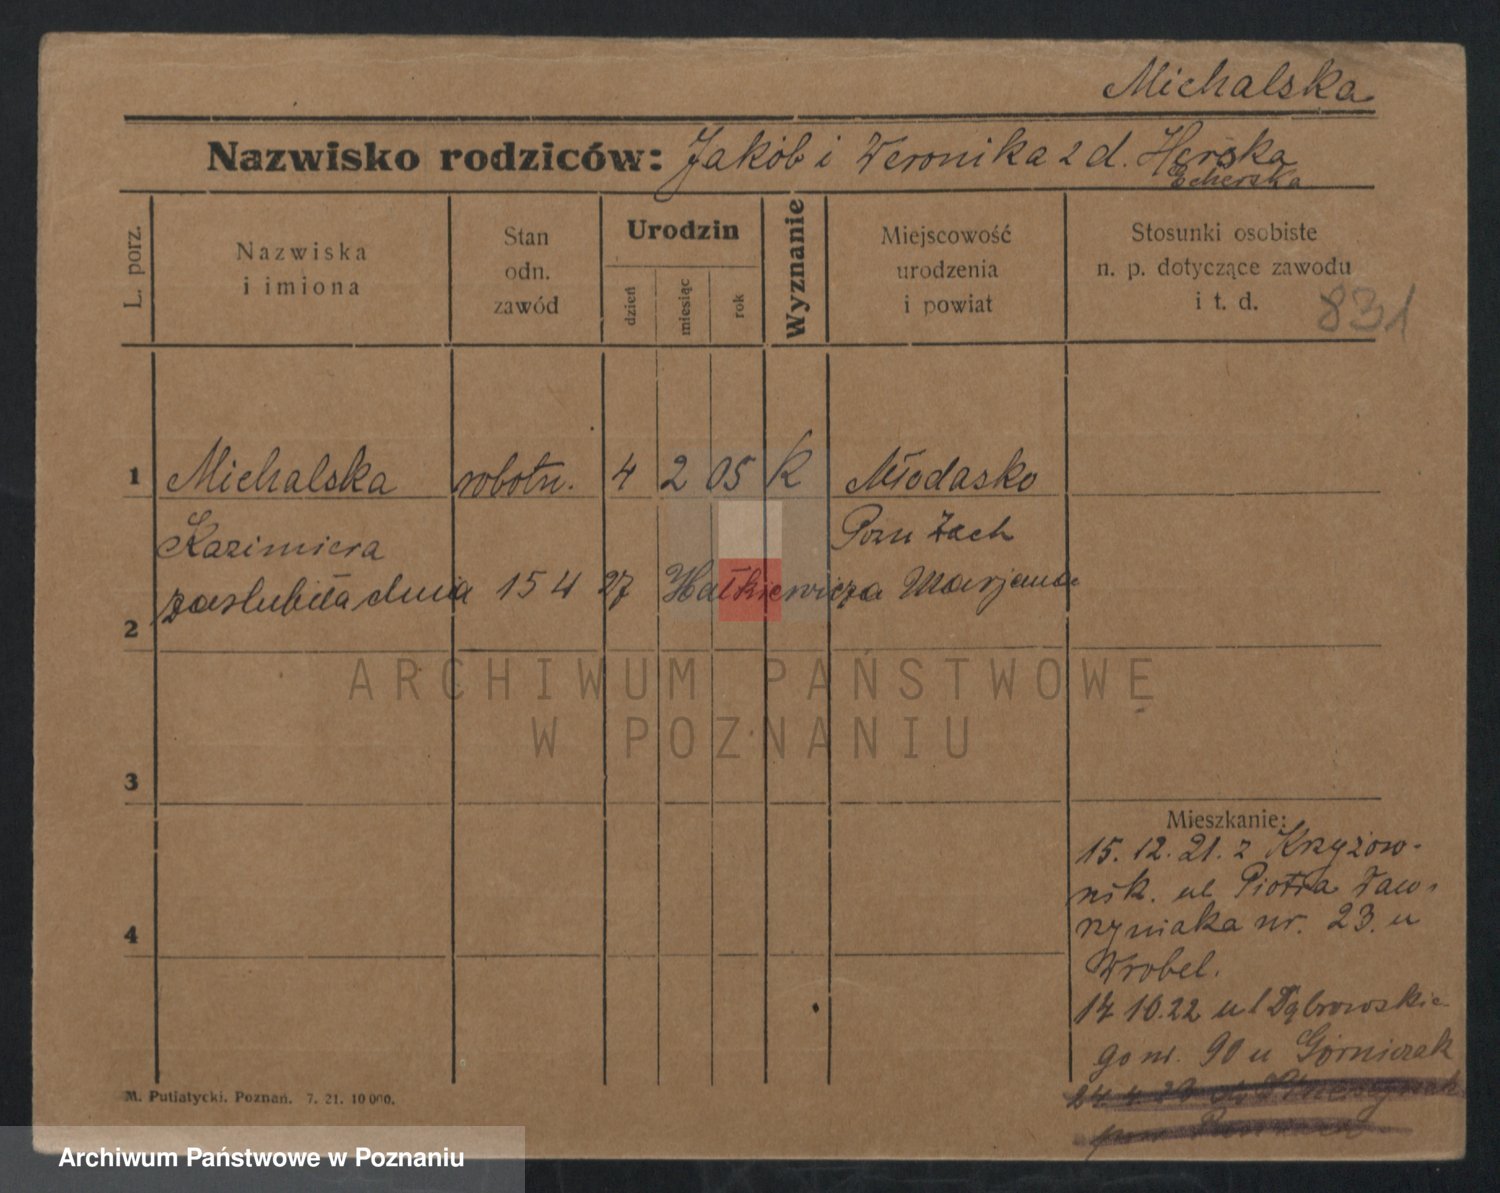 Michalska
Nazwisko rodziców: Jakób i Weronika z d. Herska
Echerska
L. porz.
Nazwiska i imiona
Stan odn. zawód
Urodzin
dzień
miesiąc
rok
Wyznanie
Miejscowość urodzenia i powiat
Stosunki osobiste n. p. dotyczące zawodu i t. d.
831
1 Michalska robotn. 4 2 05 K Młodasko
Kazimiera Pozn Zach
zaslubiła dnia 15 4 27 Hałkiewicza Marjana
2
ARCHIWUM PAŃSTWOWE
W POZNANIU
3
Mieszkanie:
15. 12. 21. z Krzyżow-
nik. ul Piotra Waw-
rzyniaka nr. 23. u
4
Wrobel.
17 10.22 ul Dąbrowskie-
go nr. 90 u Górniczak
24. 4. 23
M. Putiatycki. Poznań. 7. 21. 10000.
Archiwum Państwowe w Poznaniu